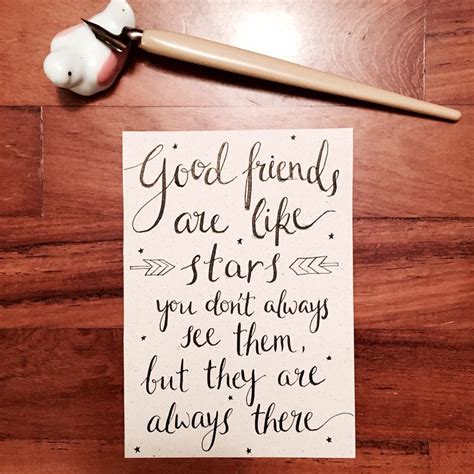 Good friends
are like
stars
you don't always
see them,
but they are
always there